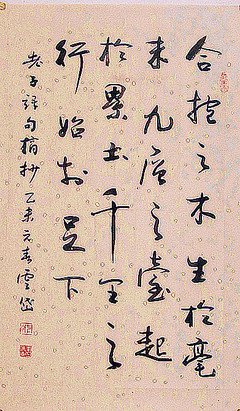 合抱之木生於毫
末九层之臺起
於累土千里之
行始於足下
老子語句摘抄乙未元春雲岱